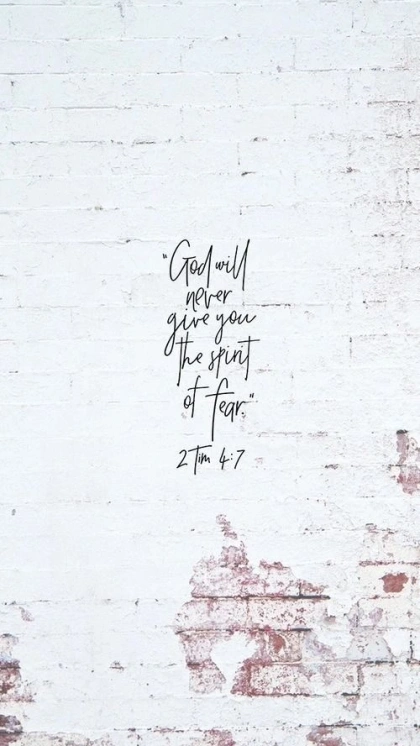 "God will
never
give you
the spirit
of fear."
2 Tim 4:7